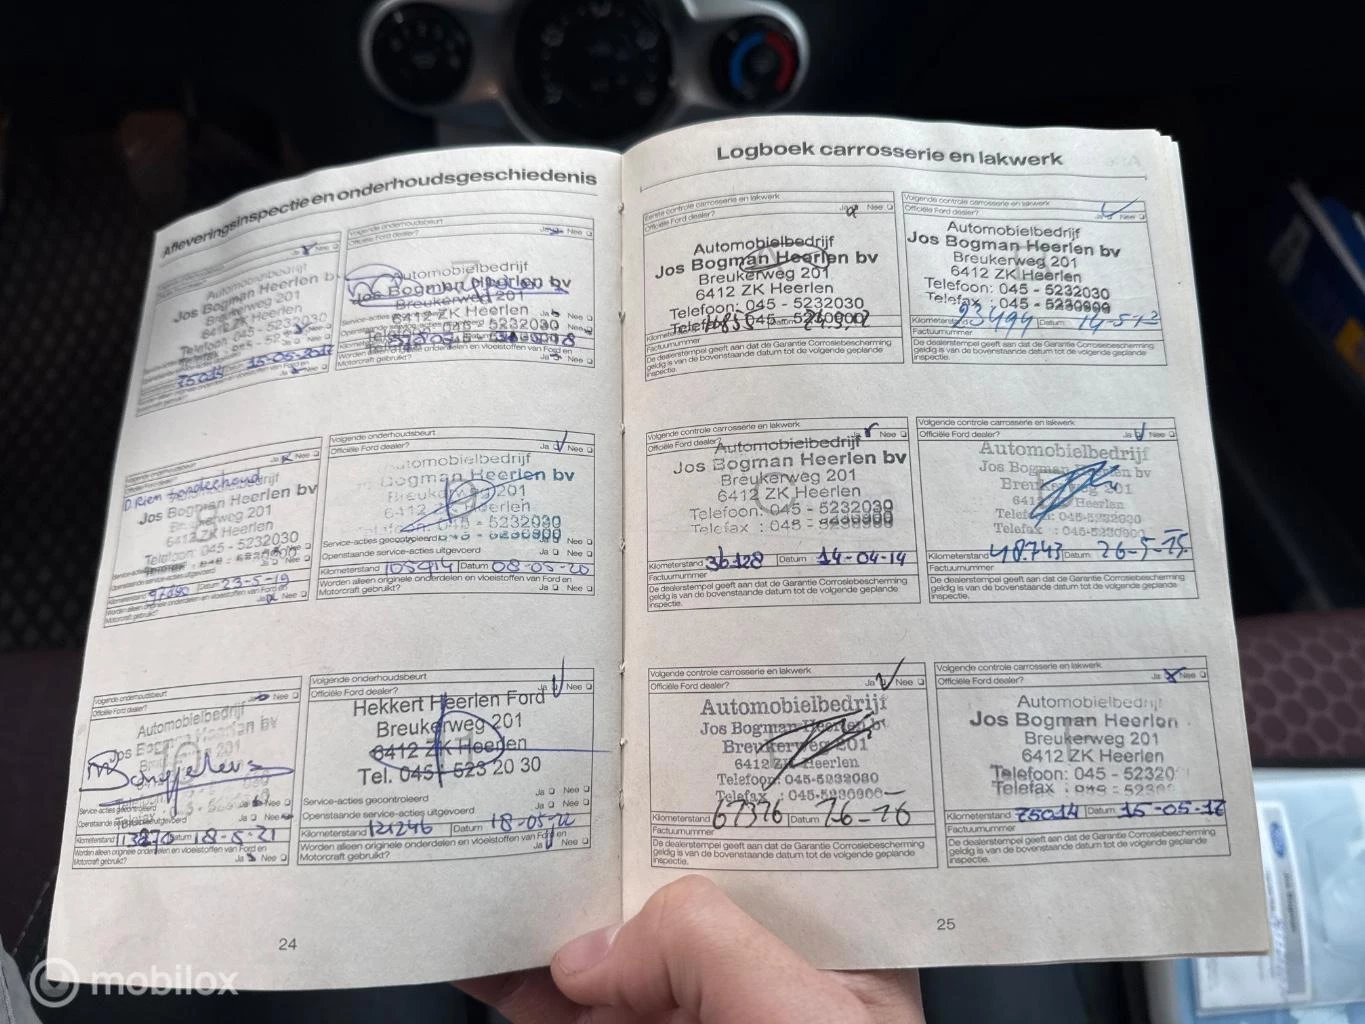 Afleveringsinspectie en onderhoudsgeschiedenis
Ja Nee
Automobielbedrijf
Jos Bogman Heerlen b
Breukerweg 201
6412 ZK Heerlen
75014 15-05-2017
Ja Nee
Volgende onderhoudsbeurt
Officiële Ford dealer? Ja Nee
Automobielbedrijf
Jos Bogman Heerlen bv
Breukerweg 201
6412 ZK Heerlen
045 - 5232030
Worden alleen originele onderdelen en vloeistoffen van Ford en
Motorcraft gebruikt? Ja Nee
Volgende onderhoudsbeurt
Ja Nee
D.Riem
Jos Bogman Heerlen bv
Breukerweg 201
6412 ZK Heerlen
Telefoon: 045 - 5232030
Kilometerstand Datum 23-5-19
Worden alleen originele onderdelen en vloeistoffen van Ford en
Ja Nee
Volgende onderhoudsbeurt
Officiële Ford dealer? Ja Nee
utomobielbedrijf
Bogman Heerlen bv
201
6412 Heerlen
045 - 5232030
Service-acties gecontroleerd Ja Nee
Openstaande service-acties uitgevoerd Ja Nee
Kilometerstand 105914 Datum 08-05-20
Worden alleen originele onderdelen en vloeistoffen van Ford en
Motorcraft gebruikt? Ja Nee
Volgende onderhoudsbeurt
Officiële Ford dealer? Ja Nee
Automobielbedrijf
Jos
Service-acties gecontroleerd Ja Nee
Openstaande service-acties uitgevoerd Ja Nee
Kilometerstand Datum 18-5-21
Worden alleen originele onderdelen en vloeistoffen van Ford en
Motorcraft gebruikt? Ja Nee
Volgende onderhoudsbeurt
Officiële Ford dealer? Ja Nee
Hekkert Heerlen Ford
Breukerweg 201
6412 ZK Heerlen
Tel. 045 - 523 20 30
Service-acties gecontroleerd Ja Nee
Openstaande service-acties uitgevoerd Ja Nee
Kilometerstand 121246 Datum 18-05-22
Worden alleen originele onderdelen en vloeistoffen van Ford en
Motorcraft gebruikt? Ja Nee
24
Logboek carrosserie en lakwerk
Eerste controle carrosserie en lakwerk
Officiële Ford dealer? Ja Nee
Automobielbedrijf
Jos Bogman Heerlen bv
Breukerweg 201
6412 ZK Heerlen
Telefoon: 045 - 5232030
Datum
Factuurnummer
De dealerstempel geeft aan dat de Garantie Corrosiebescherming
geldig is van de bovenstaande datum tot de volgende geplande
inspectie.
Volgende controle carrosserie en lakwerk
Officiële Ford dealer? Ja Nee
Automobielbedrijf
Jos Bogman Heerlen bv
Breukerweg 201
6412 ZK Heerlen
Telefoon: 045 - 5232030
Telefax : 045 -
Kilometerstand 23494 Datum 14-5-13
Factuurnummer
De dealerstempel geeft aan dat de Garantie Corrosiebescherming
geldig is van de bovenstaande datum tot de volgende geplande
inspectie.
Volgende controle carrosserie en lakwerk
Officiële Ford dealer? Ja Nee
Automobielbedrijf
Jos Bogman Heerlen bv
Breukerweg 201
6412 ZK Heerlen
Telefoon: 045 - 5232030
Telefax : 045 -
Kilometerstand 36128 Datum 14-04-14
Factuurnummer
De dealerstempel geeft aan dat de Garantie Corrosiebescherming
geldig is van de bovenstaande datum tot de volgende geplande
inspectie.
Volgende controle carrosserie en lakwerk
Officiële Ford dealer? Ja Nee
Automobielbedrijf
Jos Bogman Heerlen bv
201
6412 Heerlen
045-5232030
Telefax : 045-5230900
Kilometerstand 48743 Datum 26-5-15
Factuurnummer
De dealerstempel geeft aan dat de Garantie Corrosiebescherming
geldig is van de bovenstaande datum tot de volgende geplande
inspectie.
Volgende controle carrosserie en lakwerk
Officiële Ford dealer? Ja Nee
Automobielbedrijf
Jos Bogman Heerlen bv
Breukerweg 201
6412 ZK Heerlen
Telefoon: 045-5232030
Telefax : 045-5230900
Kilometerstand 67376 Datum
Factuurnummer
De dealerstempel geeft aan dat de Garantie Corrosiebescherming
geldig is van de bovenstaande datum tot de volgende geplande
inspectie.
Volgende controle carrosserie en lakwerk
Officiële Ford dealer? Ja Nee
Automobielbedrijf
Jos Bogman Heerlen
Breukerweg 201
6412 ZK Heerlen
Telefoon: 045 - 52320
Telefax : 045 - 5230
Kilometerstand 75014 Datum 15-05-17
Factuurnummer
De dealerstempel geeft aan dat de Garantie Corrosiebescherming
geldig is van de bovenstaande datum tot de volgende geplande
inspectie.
25
mobilox